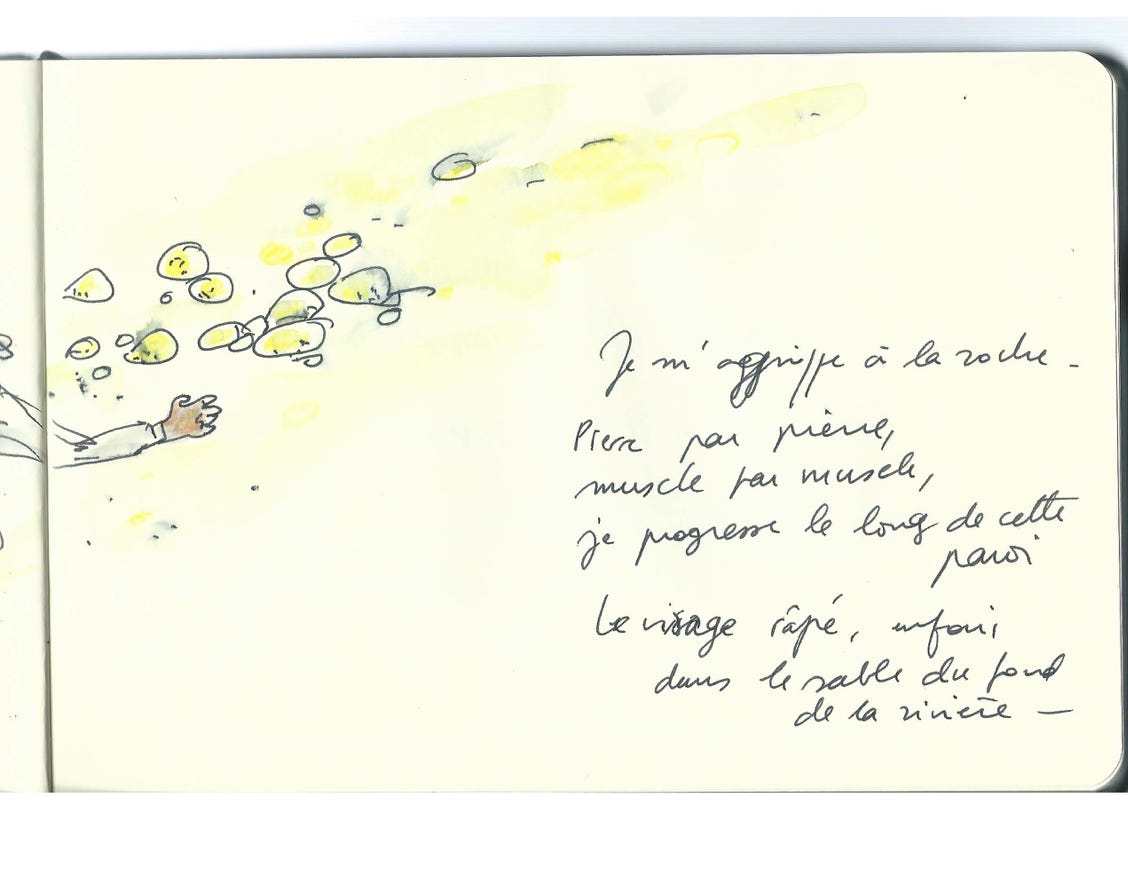 Je m'aggrippe à la roche -
Pierre par pierre,
muscle par muscle,
je progresse le long de cette
paroi
Le visage râpé, enfoui
dans le sable du fond
de la rivière -